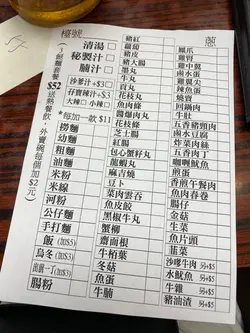 檯號
$52
清湯
秘製汁
腩汁
沙爹汁+$3
孖寶辣汁+$3
大辣 小辣
*每加一款 $11
撈麵
幼麵
粗麵
油麵
米粉
米線
河粉
公仔麵
手打麵
飯(加$5)
烏冬(加$3)
出前一丁(加$5)
腸粉
豬紅
蘿蔔
豬皮
豬大腸
墨丸
牛丸
貢丸
花枝丸
魚肉條
爆爆肉丸
花枝條
芝士腸
紅腸
包心蟹籽丸
龍蝦丸
麻吉燒
豆卜
菜肉雲吞
魚皮餃
黑椒牛丸
蟹柳
齋鹵根
牛栢葉
冬菇
魚蛋
牛腩
蔥
鳳爪
雞腎
雞中翼
鹵水蛋
雞翼尖
辣魚蛋
燒賣
牛肚
五香豬頸肉
鹵水豆腐
炸菜肉絲
五香肉丁
咖喱魷魚
煎蛋
香煎午餐肉
魚肉春卷
腸仔
金菇
生菜
魚片頭
韮菜
沙嗲牛肉 另+$5
水魷魚 另+$5
牛雜 另+$5
豬油渣 另+$5